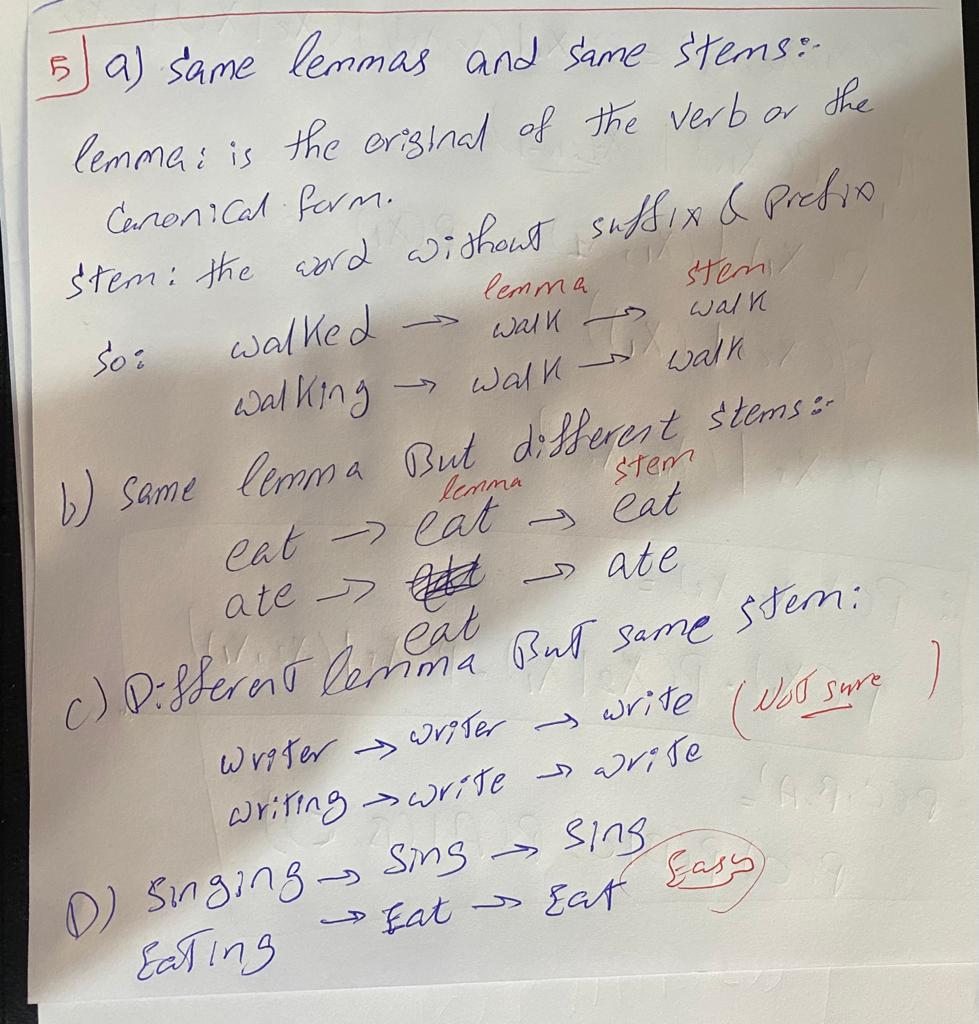 5] a) Same lemmas and same stems:-
lemma: is the original of the verb or the
Canonical form.
Stem: the word without suffix & Prefix
lemma stem
So: walked → walk → walk
walking → walk → walk
b) Same lemma But different stems:-
lemma stem
eat → eat → eat
ate → → ate
eat
c) Different lemma But same stem:
writer → writer → write (Not sure)
writing → write → write
D) Singing → Sing → Sing
Eating → Eat → Eat Easy